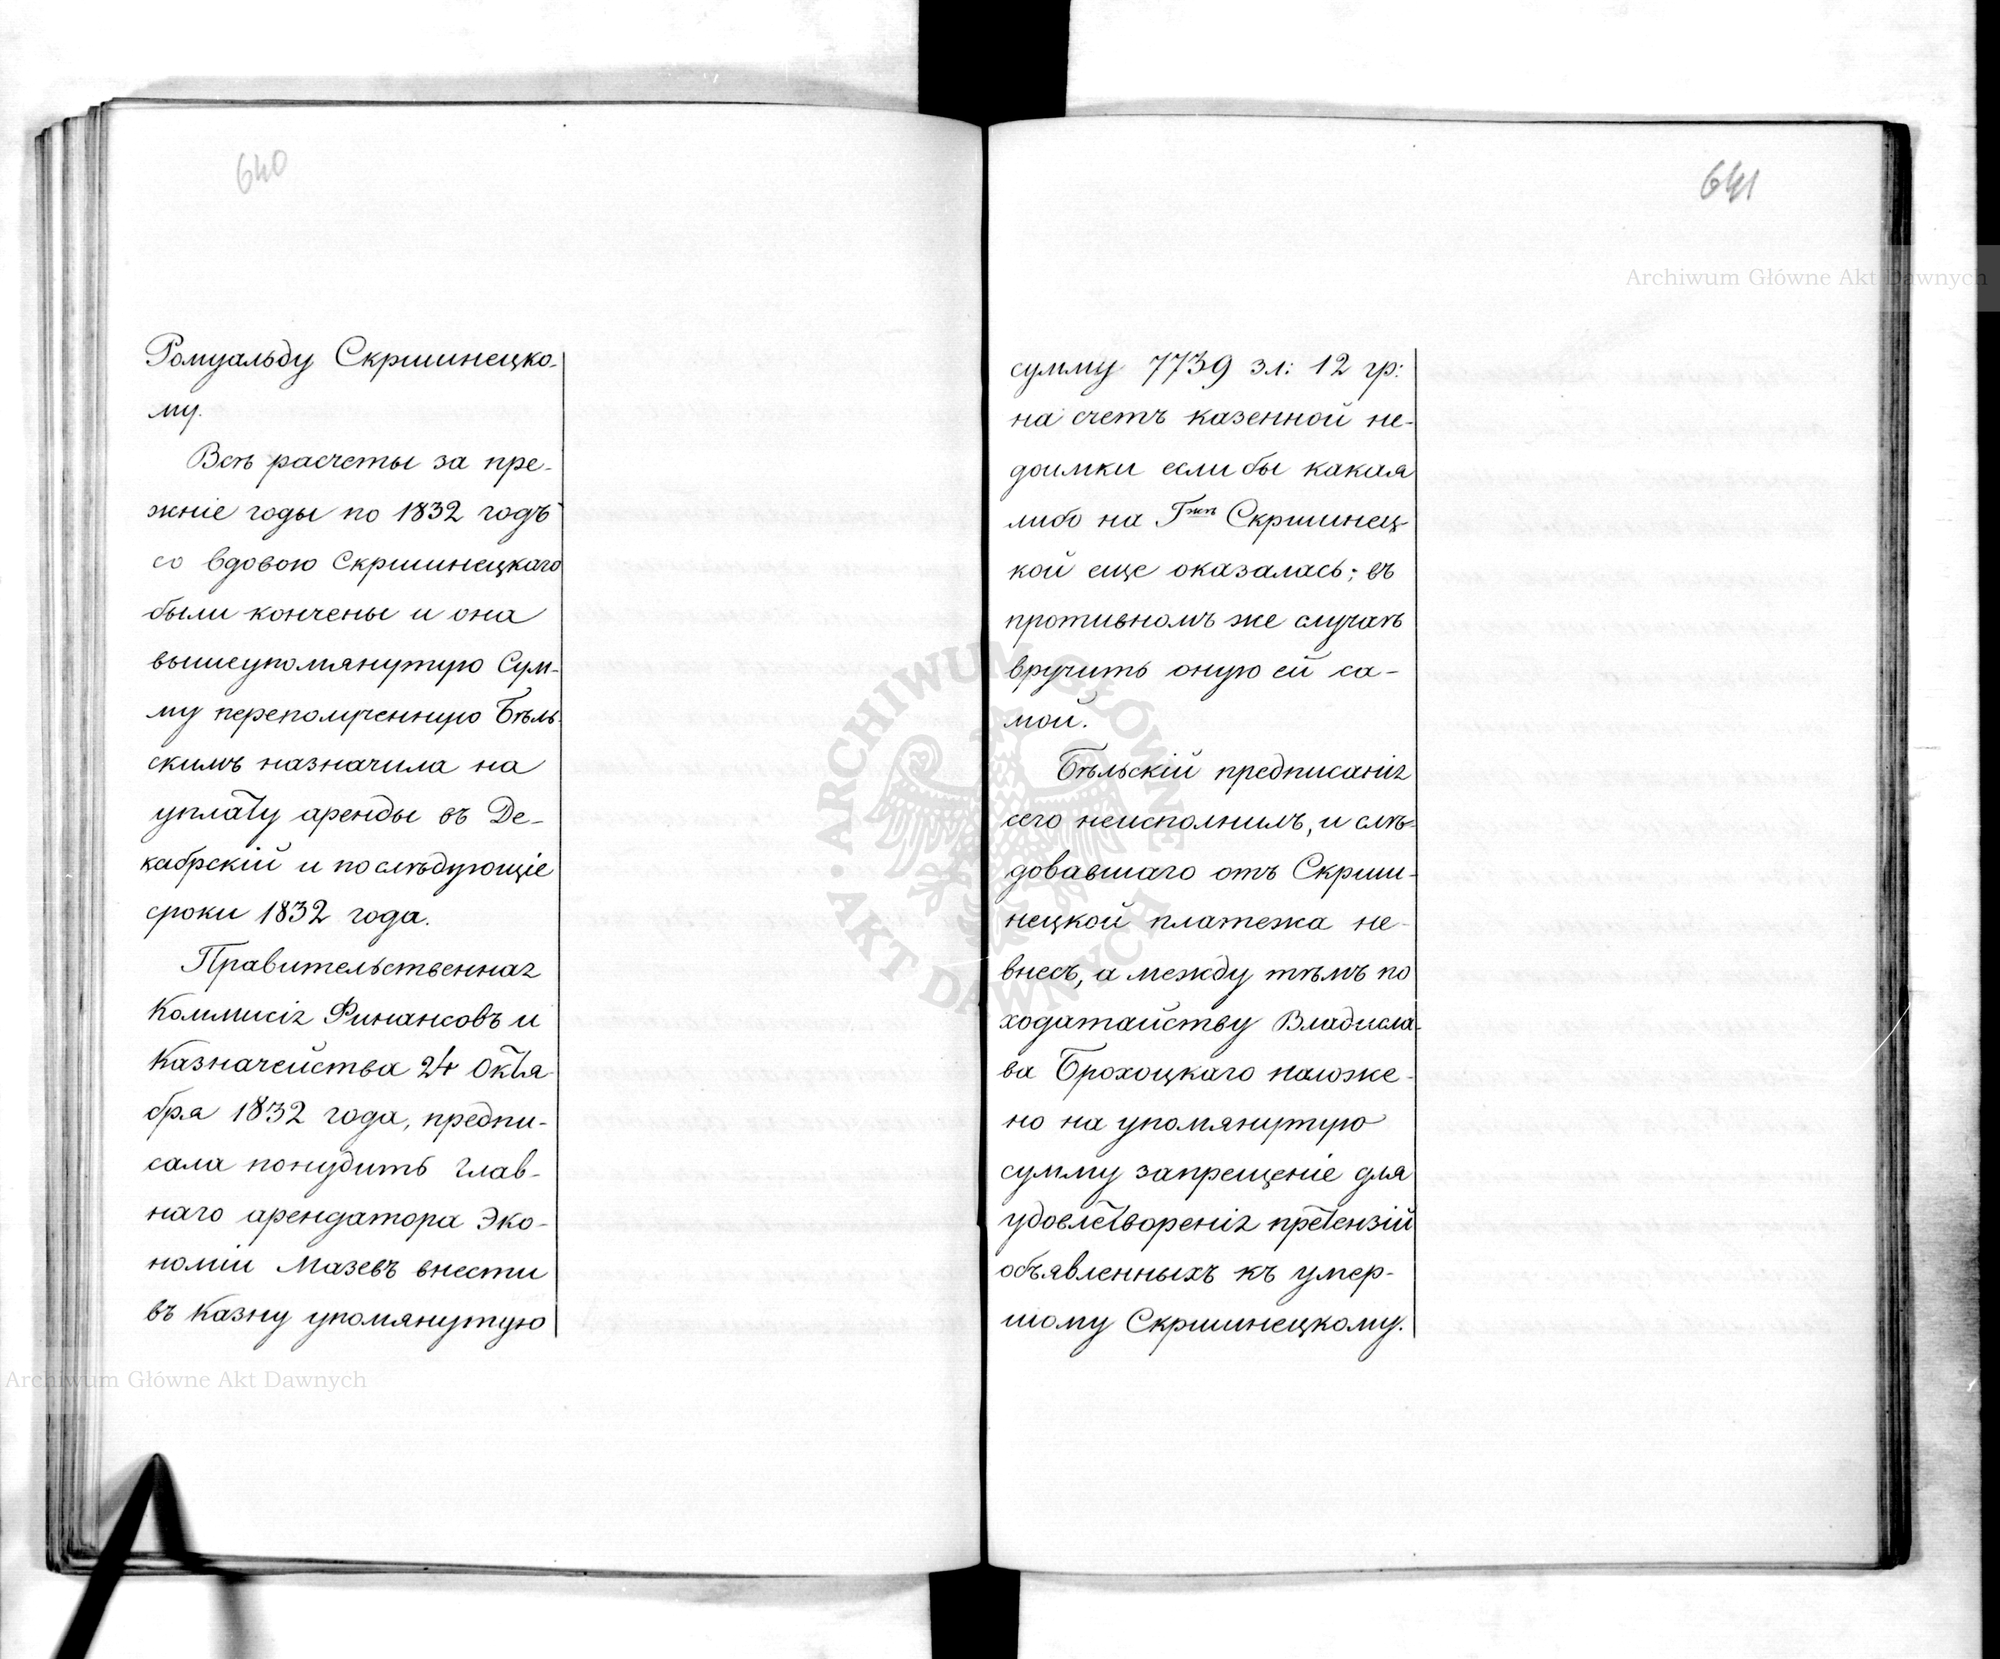 640
Ромуальду Скршинецко-
му.
Всѣ расчеты за пре-
жніе годы по 1832 годъ
со вдовою Скршинецкаго
были кончены и она
вышеупомянутую Сум-
му переполученную Бѣль-
скимъ назначила на
уплату аренды въ Де-
кабрскій и послѣдующіе
сроки 1832 года.
Правительственная
Коммисія Финансовъ и
Казначейства 24 Октя-
бря 1832 года, предпи-
сала понудить Глав-
наго арендатора Эко-
номіи Мазевъ внести
въ Казну упомянутую
641
сумму 7739 зл: 12 гр:
на счетъ казенной не-
доимки если бы какая
либо на Гжѣ Скршинец-
кой еще оказалась; въ
противномъ же случаѣ
вручить оную ей са-
мой.
Бѣльскій предписанія
сего неисполнилъ, и слѣ-
довавшаго отъ Скрши-
нецкой платежа не-
внесъ, а между тѣмъ по
ходатайству Владисла-
ва Брохоцкаго наложе-
но на упомянутую
сумму запрещеніе для
удовлетворенія претензій
объявленныхъ къ умер-
шому Скршинецкому.
Archiwum Główne Akt Dawnych
ARCHIWUM GŁÓWNE AKT DAWNYCH
Archiwum Główne Akt Dawnych